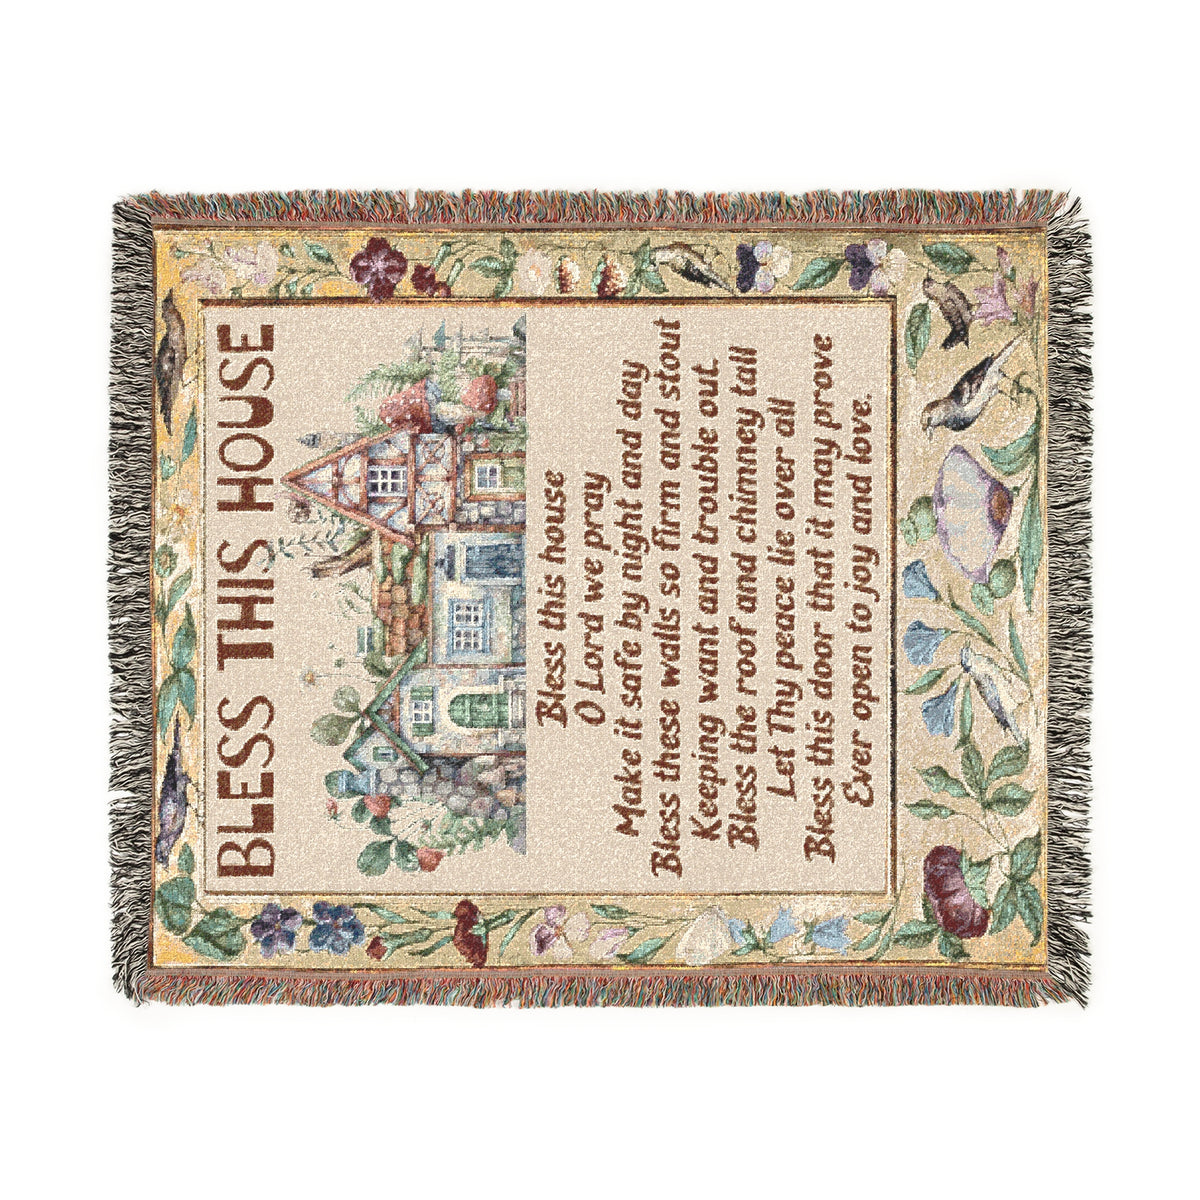 BLESS THIS HOUSE
Bless this house
O Lord we pray
Make it safe by night and day
Bless these walls so firm and stout
Keeping want and trouble out.
Bless the roof and chimney tall
Let Thy peace lie over all
Bless this door that it may prove
Ever open to joy and love.